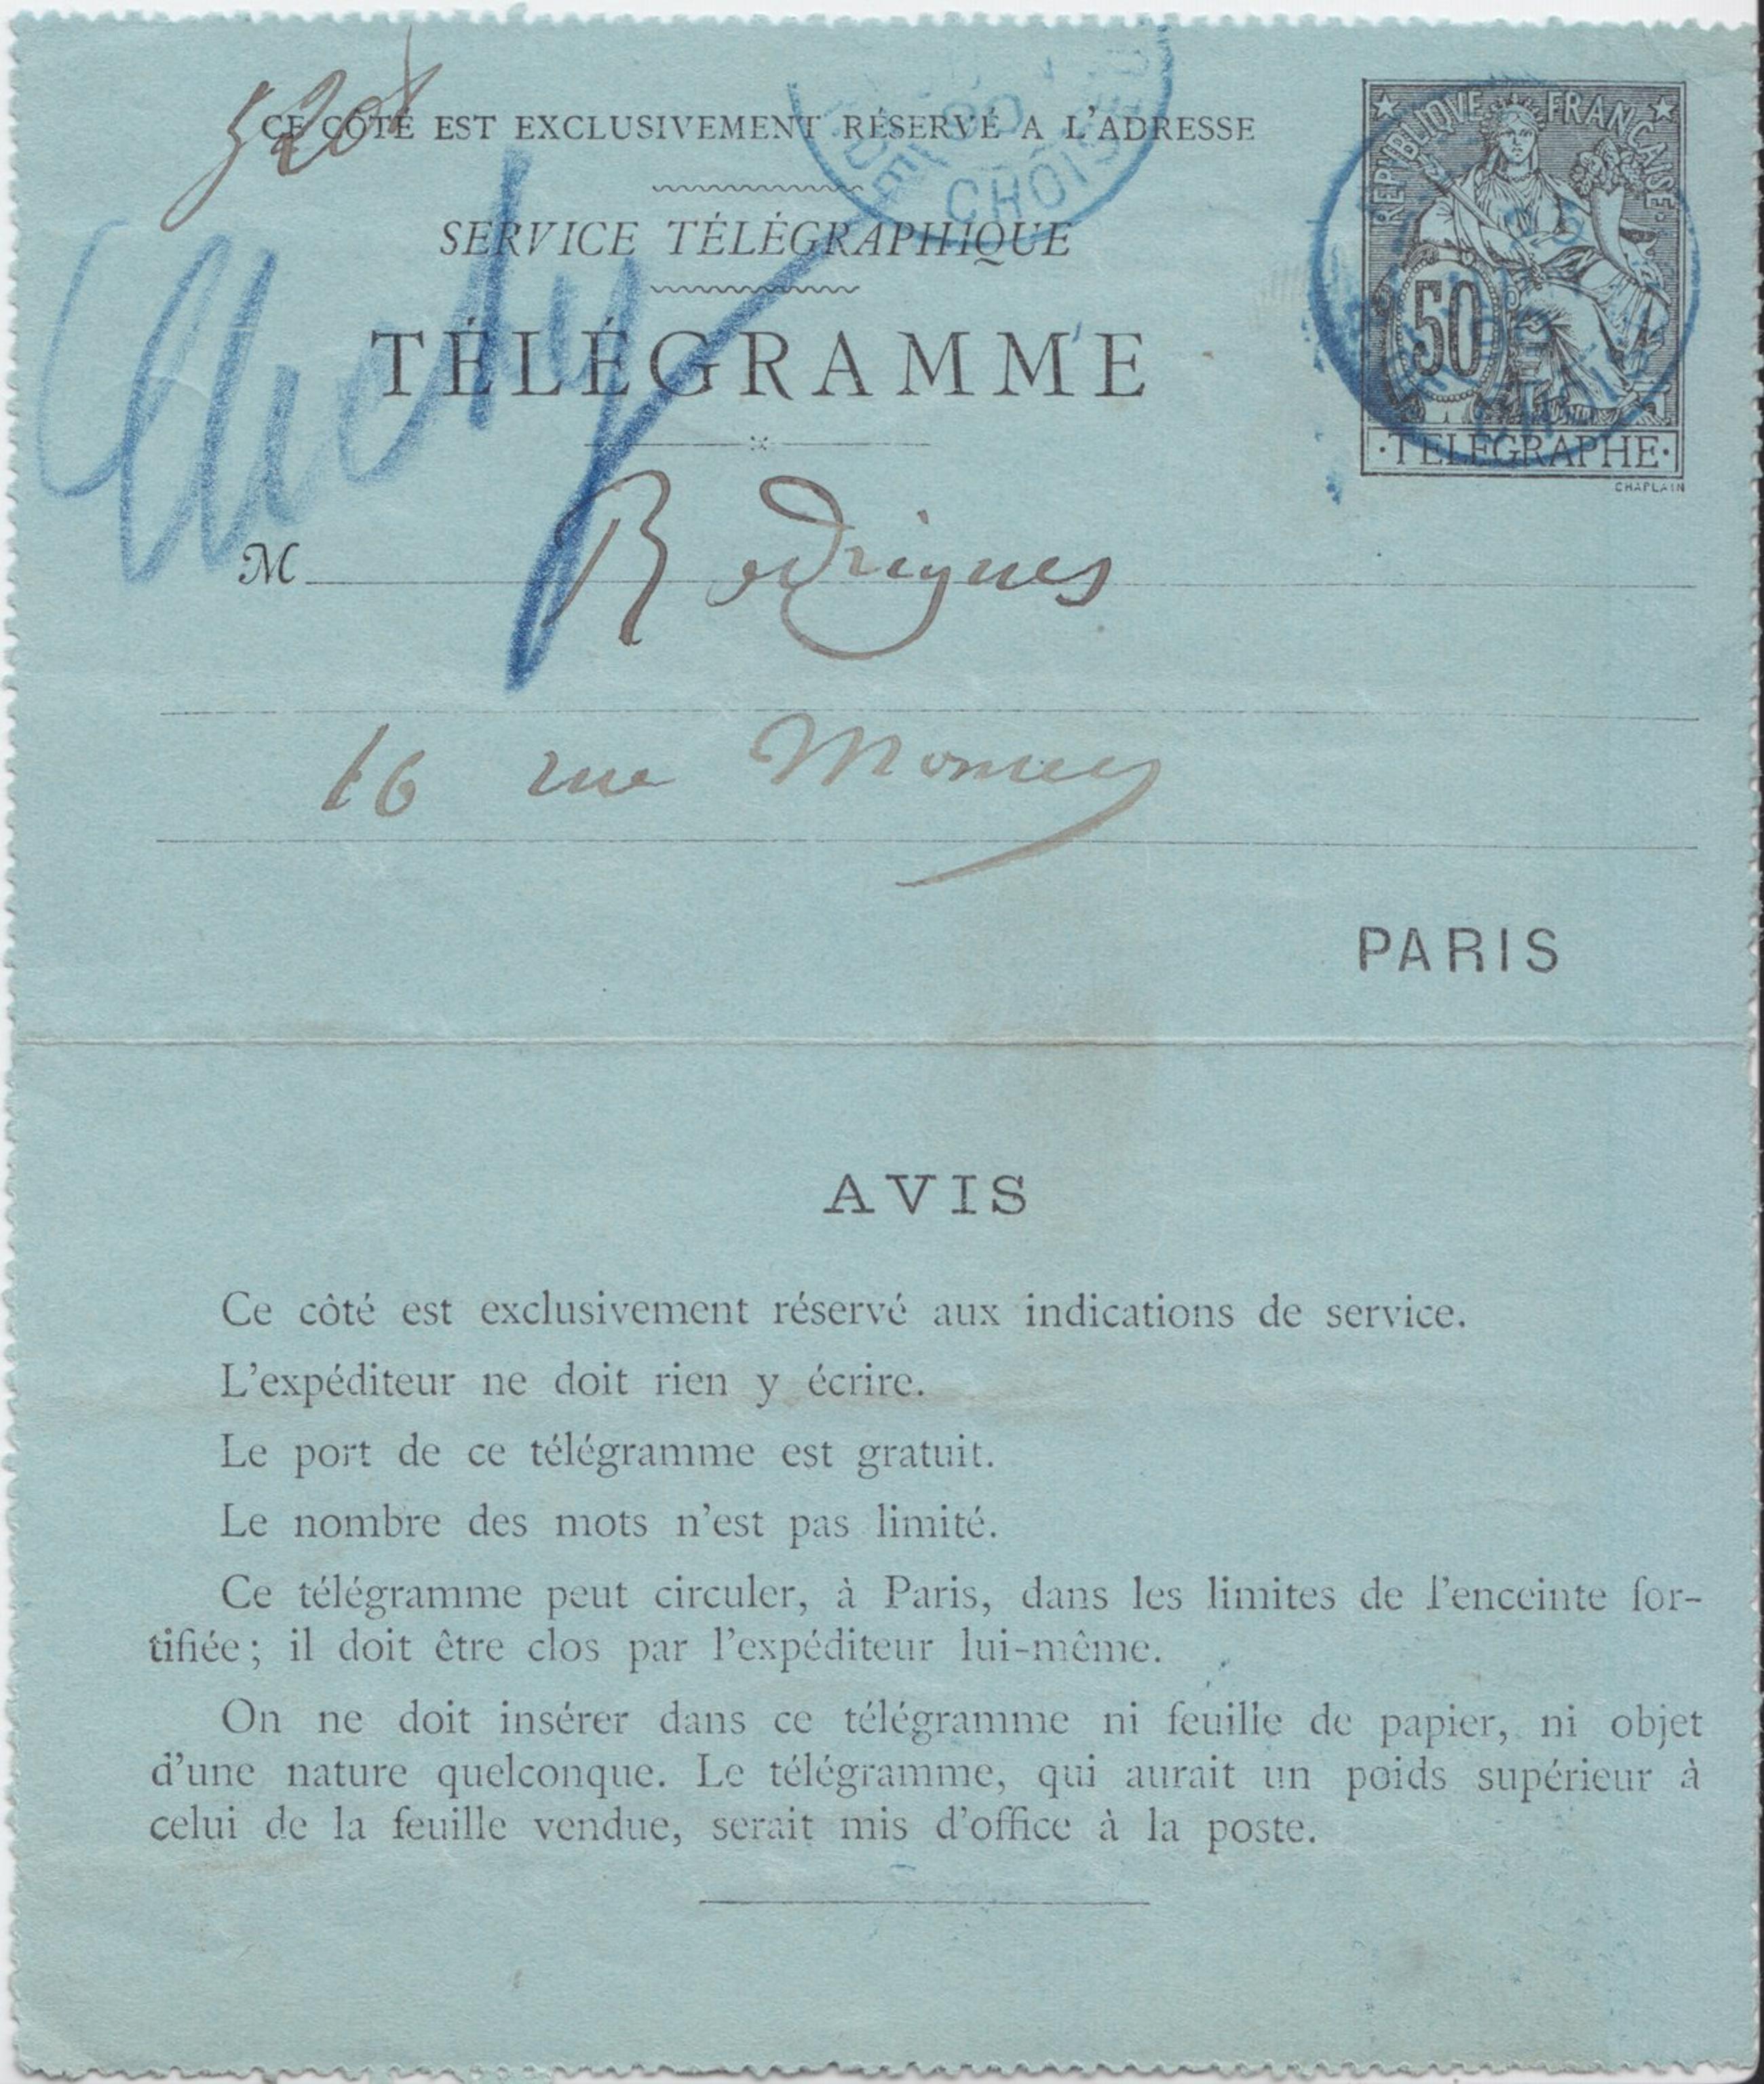 5208
CE CÔTÉ EST EXCLUSIVEMENT RÉSERVÉ A L'ADRESSE
CHOISEUL
SERVICE TÉLÉGRAPHIQUE
REPUBLIQUE FRANCAISE
50
·TELEGRAPHE·
CHAPLAIN
Clichy
TÉLÉGRAMME
M Rodrigues
16 rue Moncey
PARIS
AVIS
Ce côté est exclusivement réservé aux indications de service.
L'expéditeur ne doit rien y écrire.
Le port de ce télégramme est gratuit.
Le nombre des mots n'est pas limité.
Ce télégramme peut circuler, à Paris, dans les limites de l'enceinte for-
tifiée; il doit être clos par l'expéditeur lui-même.
On ne doit insérer dans ce télégramme ni feuille de papier, ni objet
d'une nature quelconque. Le télégramme, qui aurait un poids supérieur à
celui de la feuille vendue, serait mis d'office à la poste.